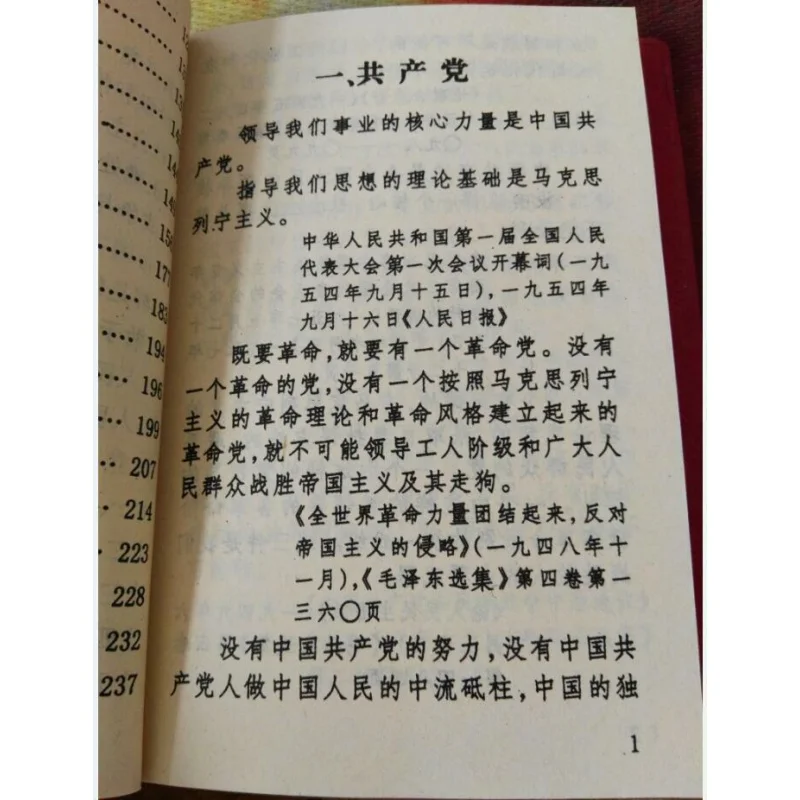 177
183
194
196
199
207
214
223
228
232
237
一、共产党
领导我们事业的核心力量是中国共
产党。
指导我们思想的理论基础是马克思
列宁主义。
中华人民共和国第一届全国人民
代表大会第一次会议开幕词(一九
五四年九月十五日),一九五四年
九月十六日《人民日报》
既要革命,就要有一个革命党。没有
一个革命的党,没有一个按照马克思列宁
主义的革命理论和革命风格建立起来的
革命党,就不可能领导工人阶级和广大人
民群众战胜帝国主义及其走狗。
《全世界革命力量团结起来,反对
帝国主义的侵略》(一九四八年十
一月),《毛泽东选集》第四卷第一
三六〇页
没有中国共产党的努力,没有中国共
产党人做中国人民的中流砥柱,中国的独
1